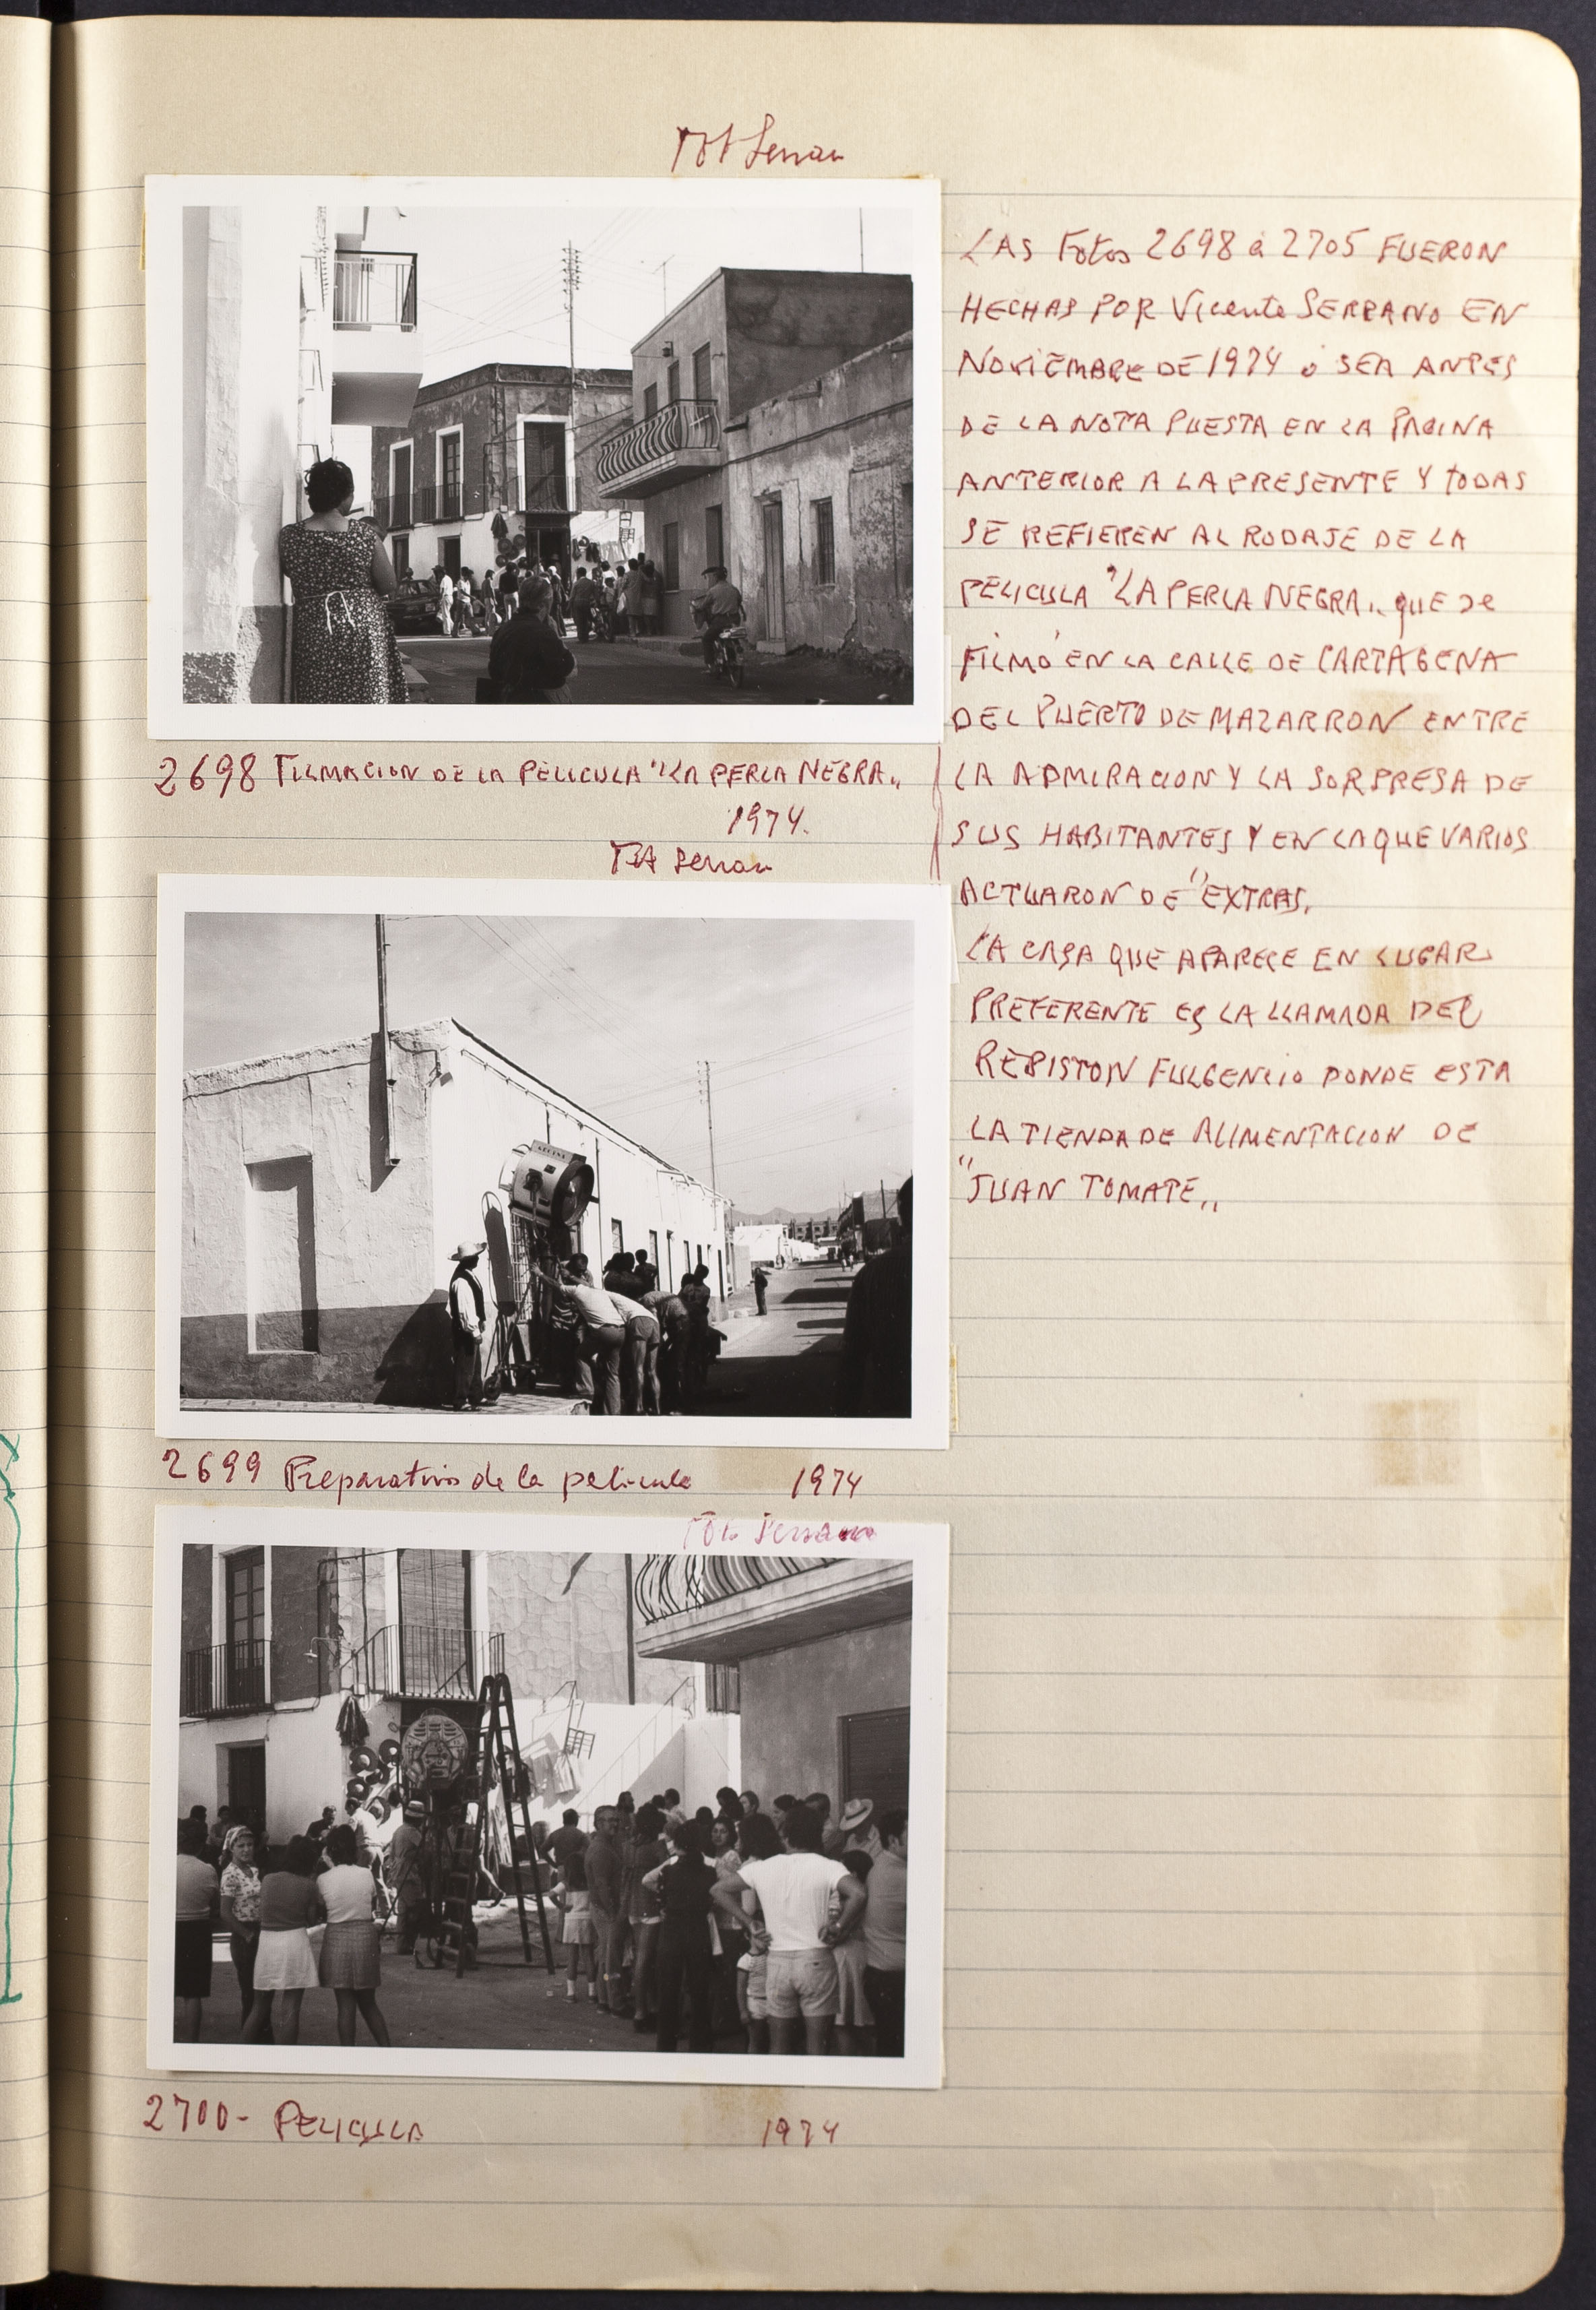 Fot Serrano
2698 FILMACION DE LA PELICULA "LA PERLA NEGRA"
1974.
Fot Serrano
2699 Preparativos de la pelicula 1974
Fot. Serrano
2700- PELICULA 1974
LAS Fotos 2698 a 2705 FUERON
HECHAS POR Vicente SERRANO EN
NOVIEMBRE DE 1974 o SEA ANTES
DE LA NOTA PUESTA EN LA PAGINA
ANTERIOR A LA PRESENTE Y TODAS
SE REFIEREN AL RODAJE DE LA
PELICULA "LA PERLA NEGRA" QUE se
FILMÓ EN LA CALLE DE CARTAGENA
DEL PUERTO DE MAZARRON ENTRE
LA ADMIRACION Y LA SORPRESA DE
SUS HABITANTES Y EN LA QUE VARIOS
ACTUARON DE "EXTRAS.
LA CASA QUE APARECE EN LUGAR
PREFERENTE ES LA LLAMADA DEL
FULGENCIO DONDE ESTA
LA TIENDA DE ALIMENTACION DE
"JUAN TOMATE"